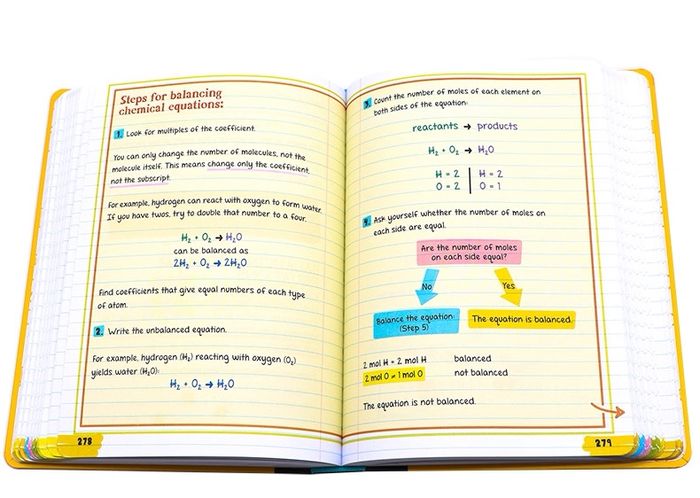 Steps for balancing
chemical equations:
1. Look for multiples of the coefficient.
You can only change the number of molecules, not the
molecule itself. This means change only the coefficient,
not the subscript.
For example, hydrogen can react with oxygen to form water.
If you have twos, try to double that number to a four.
H₂ + O₂ → H₂O
can be balanced as
2H₂ + O₂ → 2H₂O
Find coefficients that give equal numbers of each type
of atom.
2. Write the unbalanced equation.
For example, hydrogen (H₂) reacting with oxygen (O₂)
yields water (H₂O):
H₂ + O₂ → H₂O
278
3. Count the number of moles of each element on
both sides of the equation:
reactants → products
H₂ + O₂ → H₂O
H = 2 | H = 2
O = 2 | O = 1
4. Ask yourself whether the number of moles on
each side are equal.
Are the number of moles
on each side equal?
No Yes
Balance the equation: The equation is balanced.
(Step 5)
2 mol H = 2 mol H balanced
2 mol O ≠ 1 mol O not balanced
The equation is not balanced.
279